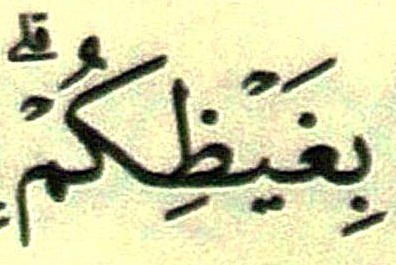 بِغَيْظِكُمْ ۗ